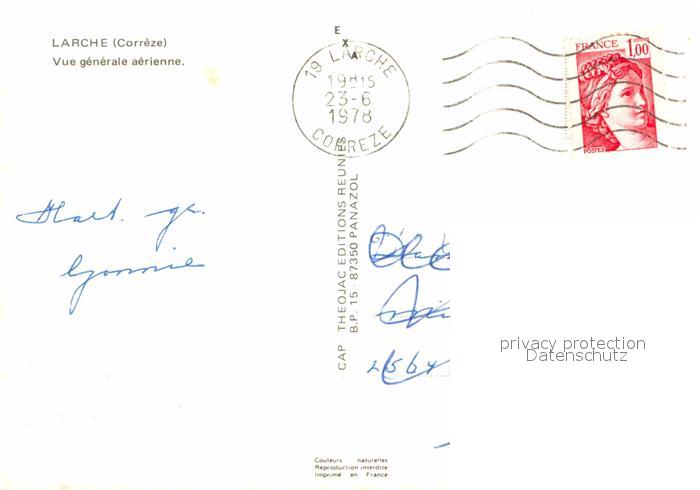 LARCHE (Corrèze)
Vue générale aérienne.
E
X
A
19 LARCHE
19H15
23-6
1978
CORREZE
FRANCE 1,00
POSTES
Hart. gr.
Yonnie
CAP - THEOJAC EDITIONS REUNIES
B.P. 15 - 87350 PANAZOL
privacy protection
Datenschutz
Couleurs naturelles
Reproduction interdite
Imprimé en France